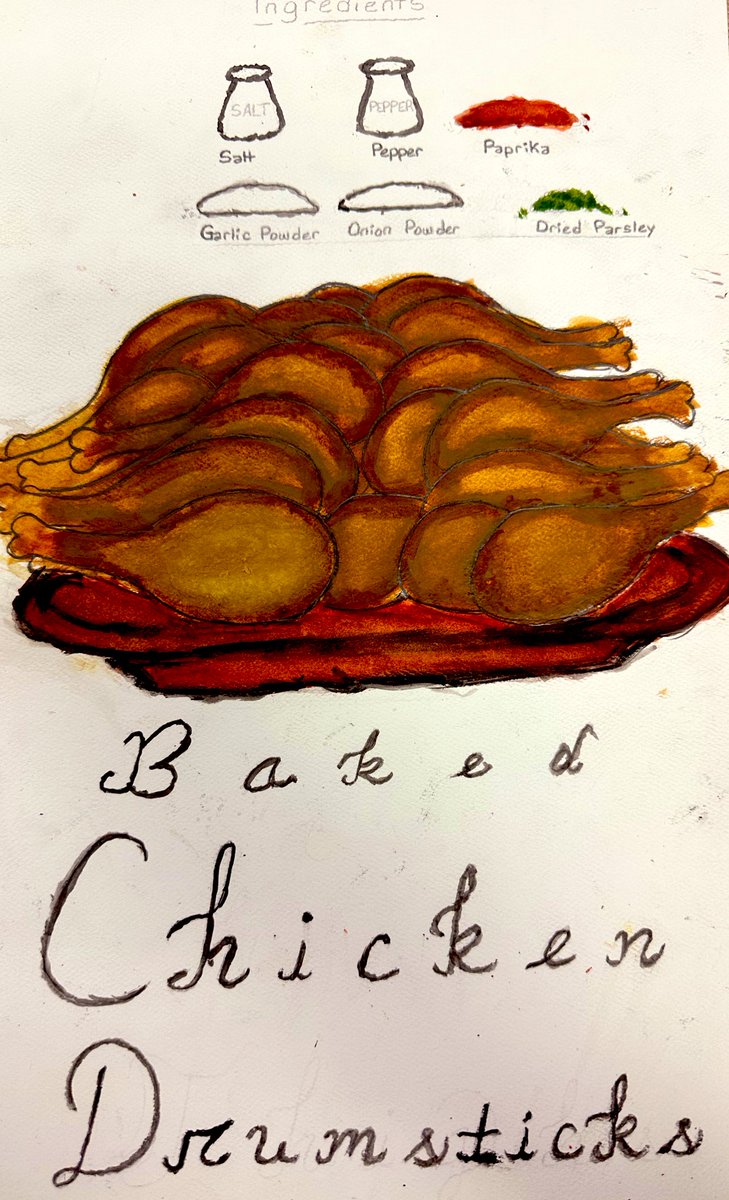 Ingredients
SALT PEPPER
Salt Pepper Paprika
Garlic Powder Onion Powder Dried Parsley
Baked
Chicken
Drumsticks